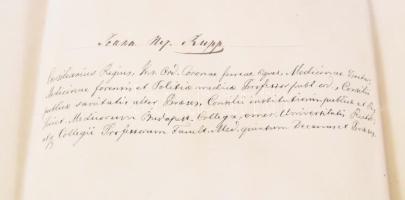 Joann. Nep. Rupp
Consiliarius Regius, Ord. Coronae ferreae Eques, Medicinae Doctor,
Medicinae forensis et Politiae medicae Professor publ. ord., Consilii
publicae sanitatis alter Praeses, Consilii institutionum publicae et Reg.
Societ. Medicorum Budapest. Collega, emer. Universitatis Rector,
et Collegii Professorum Facult. Med. quantum Decanus et Praeses.